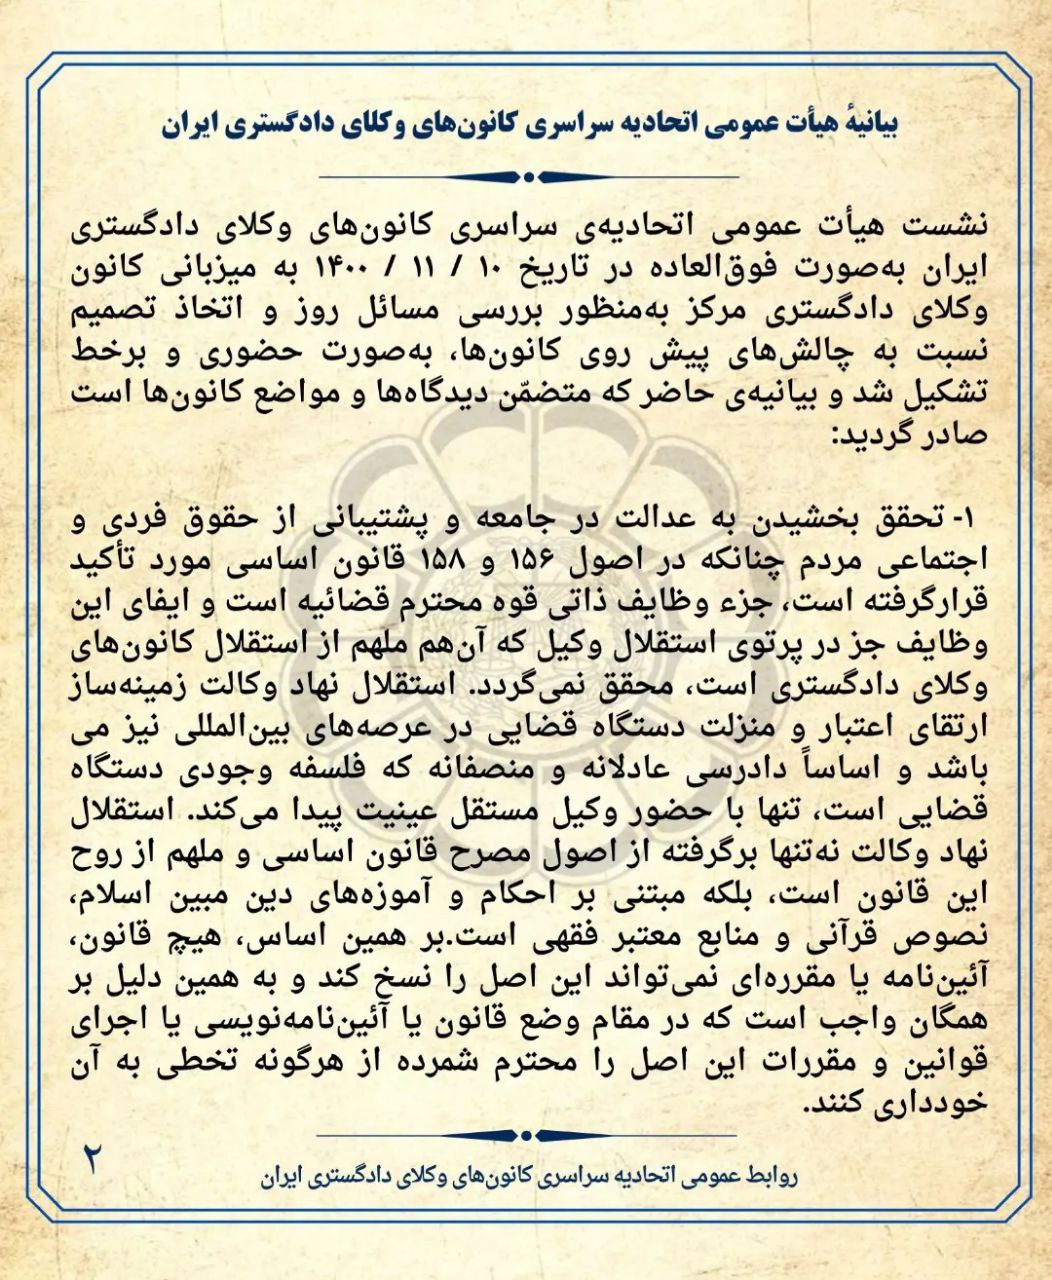 بیانیهٔ هیأت عمومی اتحادیه سراسری کانون‌های وکلای دادگستری ایران
نشست هیأت عمومی اتحادیه‌ی سراسری کانون‌های وکلای دادگستری
ایران به‌صورت فوق‌العاده در تاریخ ۱۰ / ۱۱ / ۱۴۰۰ به میزبانی کانون
وکلای دادگستری مرکز به‌منظور بررسی مسائل روز و اتخاذ تصمیم
نسبت به چالش‌های پیش روی کانون‌ها، به‌صورت حضوری و برخط
تشکیل شد و بیانیه‌ی حاضر که متضمّن دیدگاه‌ها و مواضع کانون‌ها است
صادر گردید:
۱- تحقق بخشیدن به عدالت در جامعه و پشتیبانی از حقوق فردی و
اجتماعی مردم چنانکه در اصول ۱۵۶ و ۱۵۸ قانون اساسی مورد تأکید
قرارگرفته است، جزء وظایف ذاتی قوه محترم قضائیه است و ایفای این
وظایف جز در پرتوی استقلال وکیل که آن‌هم ملهم از استقلال کانون‌های
وکلای دادگستری است، محقق نمی‌گردد. استقلال نهاد وکالت زمینه‌ساز
ارتقای اعتبار و منزلت دستگاه قضایی در عرصه‌های بین‌المللی نیز می
باشد و اساساً دادرسی عادلانه و منصفانه که فلسفه وجودی دستگاه
قضایی است، تنها با حضور وکیل مستقل عینیت پیدا می‌کند. استقلال
نهاد وکالت نه‌تنها برگرفته از اصول مصرح قانون اساسی و ملهم از روح
این قانون است، بلکه مبتنی بر احکام و آموزه‌های دین مبین اسلام،
نصوص قرآنی و منابع معتبر فقهی است.بر همین اساس، هیچ قانون،
آئین‌نامه یا مقرره‌ای نمی‌تواند این اصل را نسخ کند و به همین دلیل بر
همگان واجب است که در مقام وضع قانون یا آئین‌نامه‌نویسی یا اجرای
قوانین و مقررات این اصل را محترم شمرده از هرگونه تخطی به آن
خودداری کنند.
روابط عمومی اتحادیه سراسری کانون‌های وکلای دادگستری ایران
۲